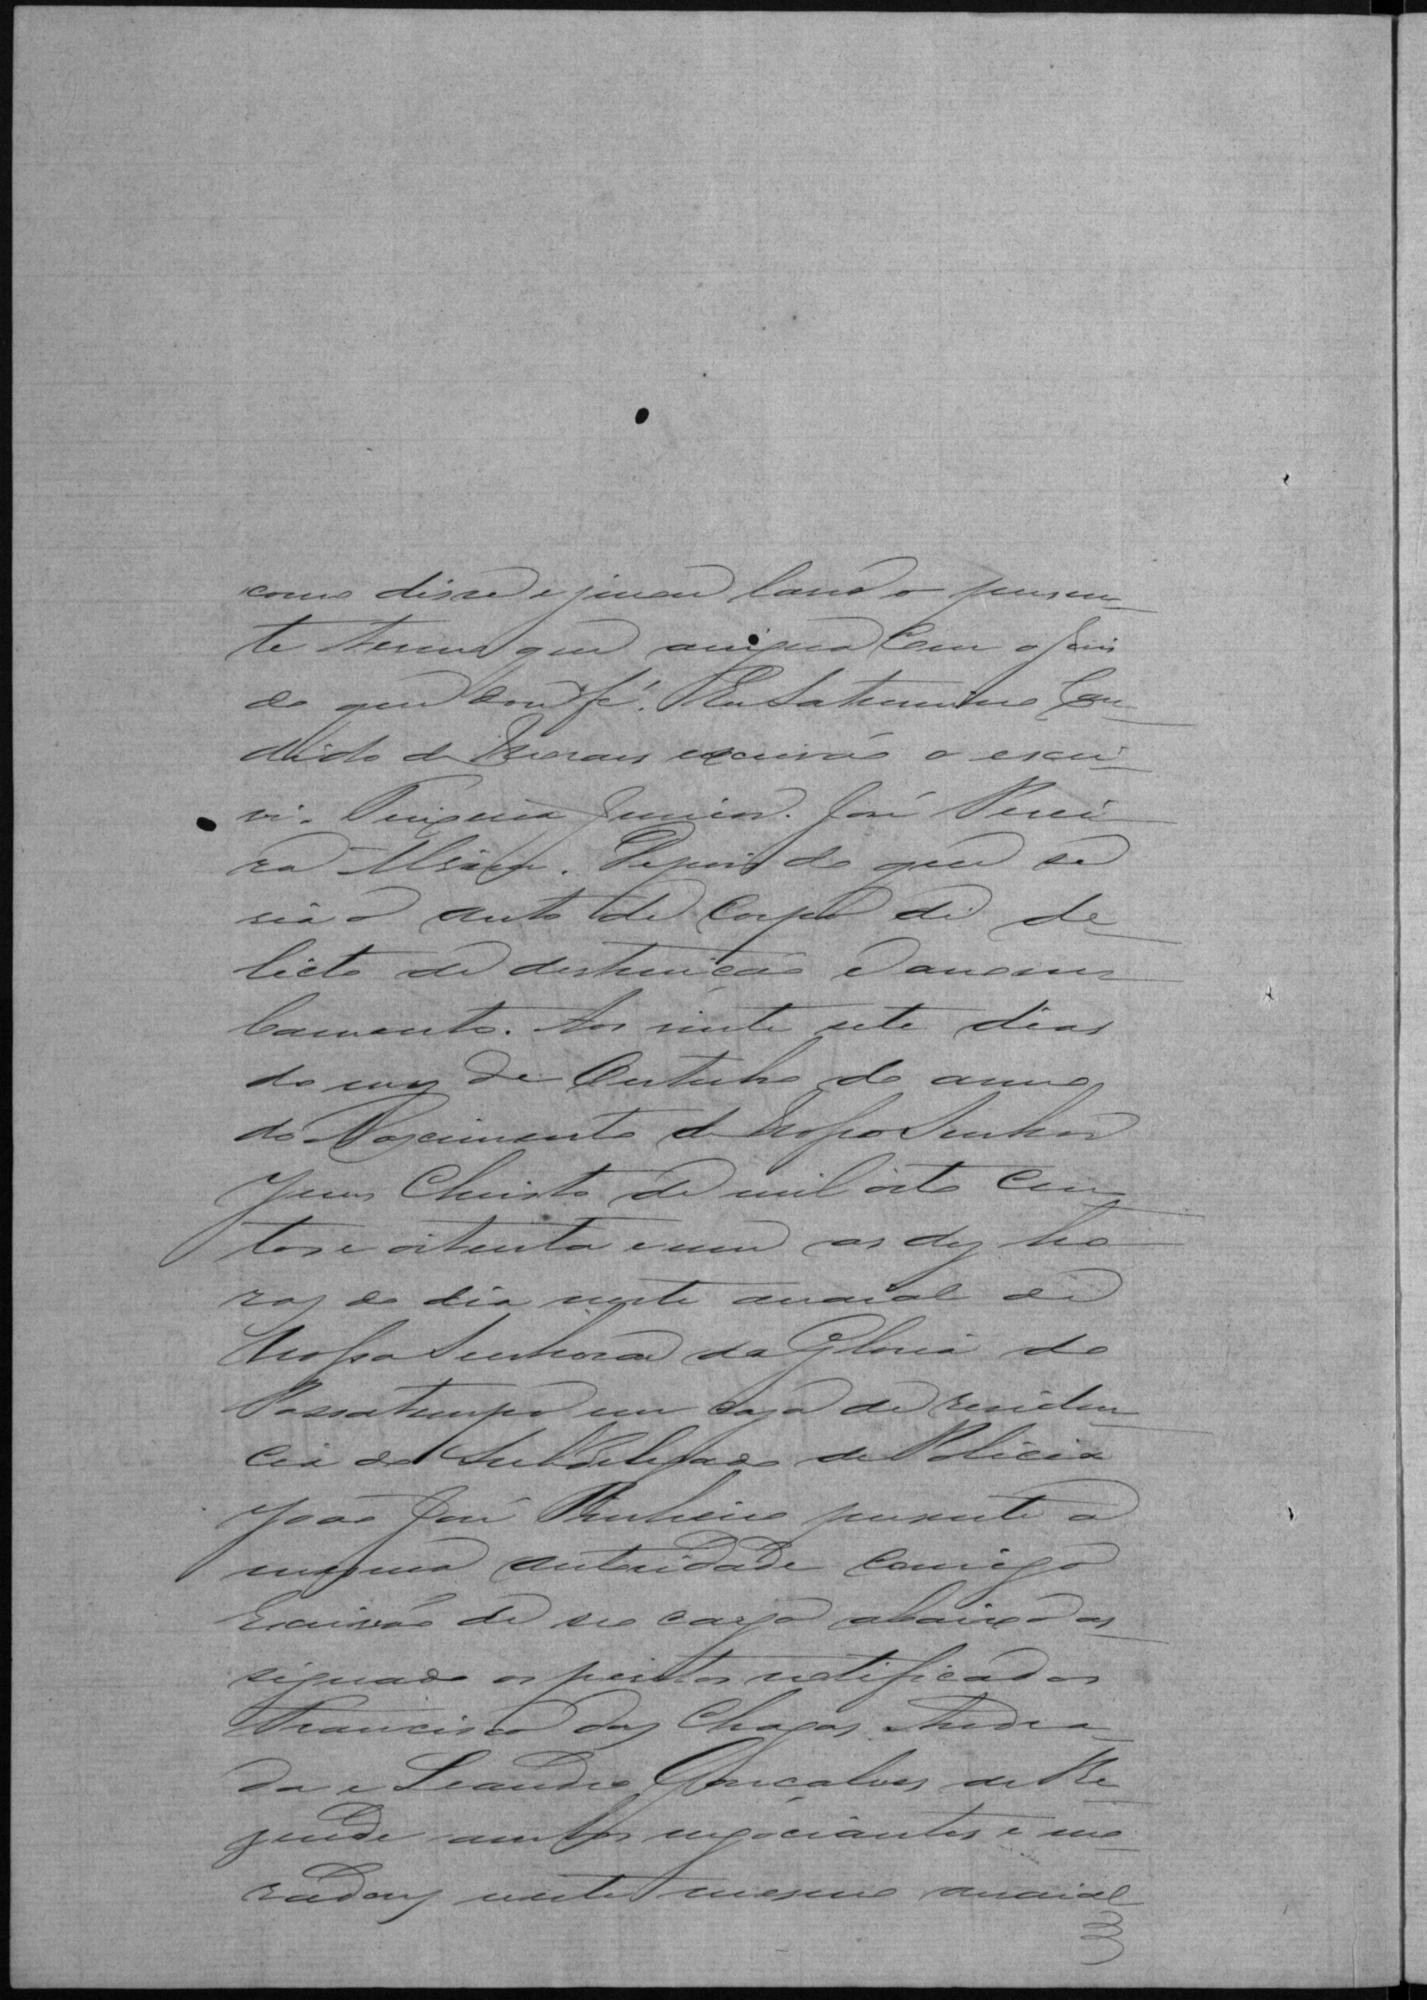 como disse e jurou lavro o presen
te termo que assigna com o Juis
do que dou fé. Eu Saturnino Can
dido de Moraes escrivão o escre
vi. Junior. José Perei
ra. Depois do que se
via o auto de corpo de de
licto de destruição e danoni
camento. Aos vinte sete dias
do mez de Outubro do anno
do Nascimento de Nosso Senhor
Jesus Christo de mil oito cen
tos e oitenta e um as dez ho
ras do dia neste arraial de
Nossa Senhora da Gloria do
Passatempo em caza de residen
cia do Subdelegado de Policia
João José Pinheiro presente a
mesma autoridade comigo
Escrivão de seo cargo abaixo as
signado os peritos notificados
Francisco das Chagas Andra
da e Leandro Gonçalves de Re
zende ambos negociantes e mo
radores neste mesmo arraial